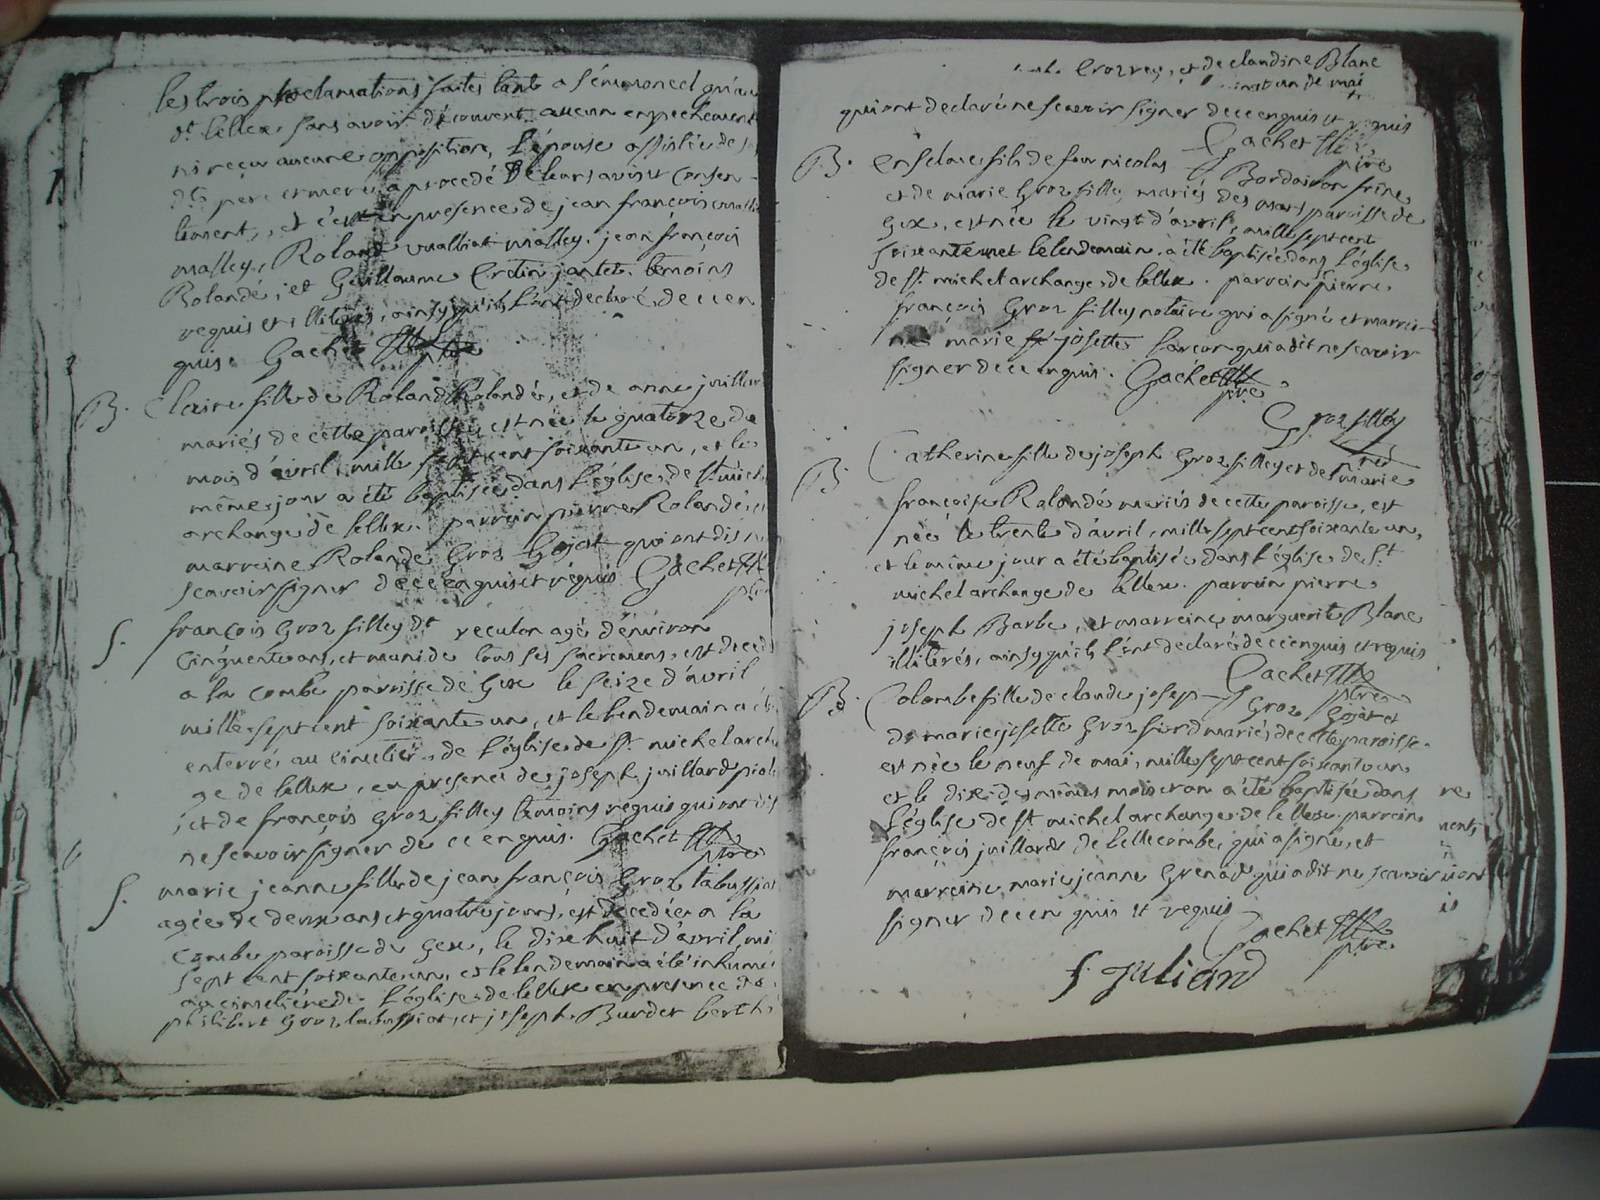 les trois proclamations faites tant a Sémoncel qu'au
dt lellex, sans avoir découvert aucun enpechement
ni reçu aucune opposition, l'épouse assistée de
dts pere et mere a procedé de leurs avis et consen-
tement, et c'est en presence de jean françois
malley, Roland vualliat malley, jean françois
Rolandé, et Guillaume Cretin jantet, temoins
requis et illiterés, ainsy qu'ils l'ont declaré, de ce en
quis. Gachet ptre
B. Claire fille de Roland Rolandé, et de anne juillar
mariés de cette paroisse, est née le quatorze du
mois d'avril, mille sept cent soixante un, et le
même jour a été baptisée dans l'église de St mich
archange de lellex. parrain pierre Rolandé, et
marreine Rolande Groz Gojat qui ont dis ne
scavoir signer de ce enquis et requis Gachet ptre
S. françois Groz filley dt reculon agé d'environ
cinquente ans, et muni de tous ses sacremens, est deced
a la combe parrisse de Gex le seize d'avril
mille sept cent soixante un, et le lendemain a
enterré au cimetiere de l'église de St michel arch
ge de lellex, en presence de joseph juillard
, et de françois Groz filley temoins requis qui ont dis
ne scavoir signer de ce enquis. Gachet ptre
S. marie jeanne fille de jean françois Groz tabussiat
agée de deux ans et quatre jours, est decedée a la
combe paroisse de Gex, le dix huit d'avril, mi
sept cent soixante un, et le lendemain a été inhumé
au cimetiere de l'église de lellex en presence de
philibert Groz tabussiat, et joseph Burdet
Crozrey, et de claudine Blanc
de mai
qui ont declaré ne scavoir signer de ce enquis et requis
Gachet ptre
B. Enselme fils de feu nicolas Bordairon
et de marie Groz filley mariés des mars paroisse de
Gex, est née le vingt d'avril, mille sept cent
soixante un et le lendemain a été baptisé dans l'église
de St michel archange de lellex. parrain pierre
françois Groz filley notaire qui a signé et marrei-
ne marie josette Lançon qui a dit ne scavoir
signer de ce enquis. Gachet ptre
Groz filley
B. Catherine fille de joseph Groz filley et de marie
françoise Rolandé mariés de cette paroisse, est
née le trente d'avril, mille sept cent soixante un,
et le même jour a été baptisée dans l'église de St
michel archange de lellex. parrain pierre
joseph Barbe, et marreine marguerite Blanc
illiterés, ainsy qu'ils l'ont declaré de ce enquis et requis
Gachet ptre
B. Colombe fille de claude joseph Groz Gojat et
de marie josette Groz fiord mariés de cette paroisse
est née le neuf de mai, mille sept cent soixante un
et le dix de même mois et an a été baptisée dans
l'église de St michel archange de lellex. parrein
françois juillard de bellecombe, qui a signé, et
marreine marie jeanne Grenard qui a dit ne scavoir
signer de ce en quis et requis
Gachet ptre
f. Juliand